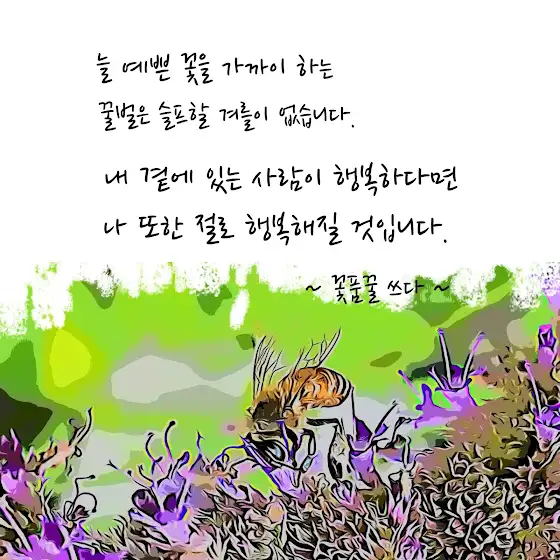 늘 예쁜 꽃을 가까이 하는
꿀벌은 슬프할 겨를이 없습니다.
내 곁에 있는 사람이 행복하다면
나 또한 절로 행복해질 것입니다.
~ 꽃품꿀 쓰다 ~